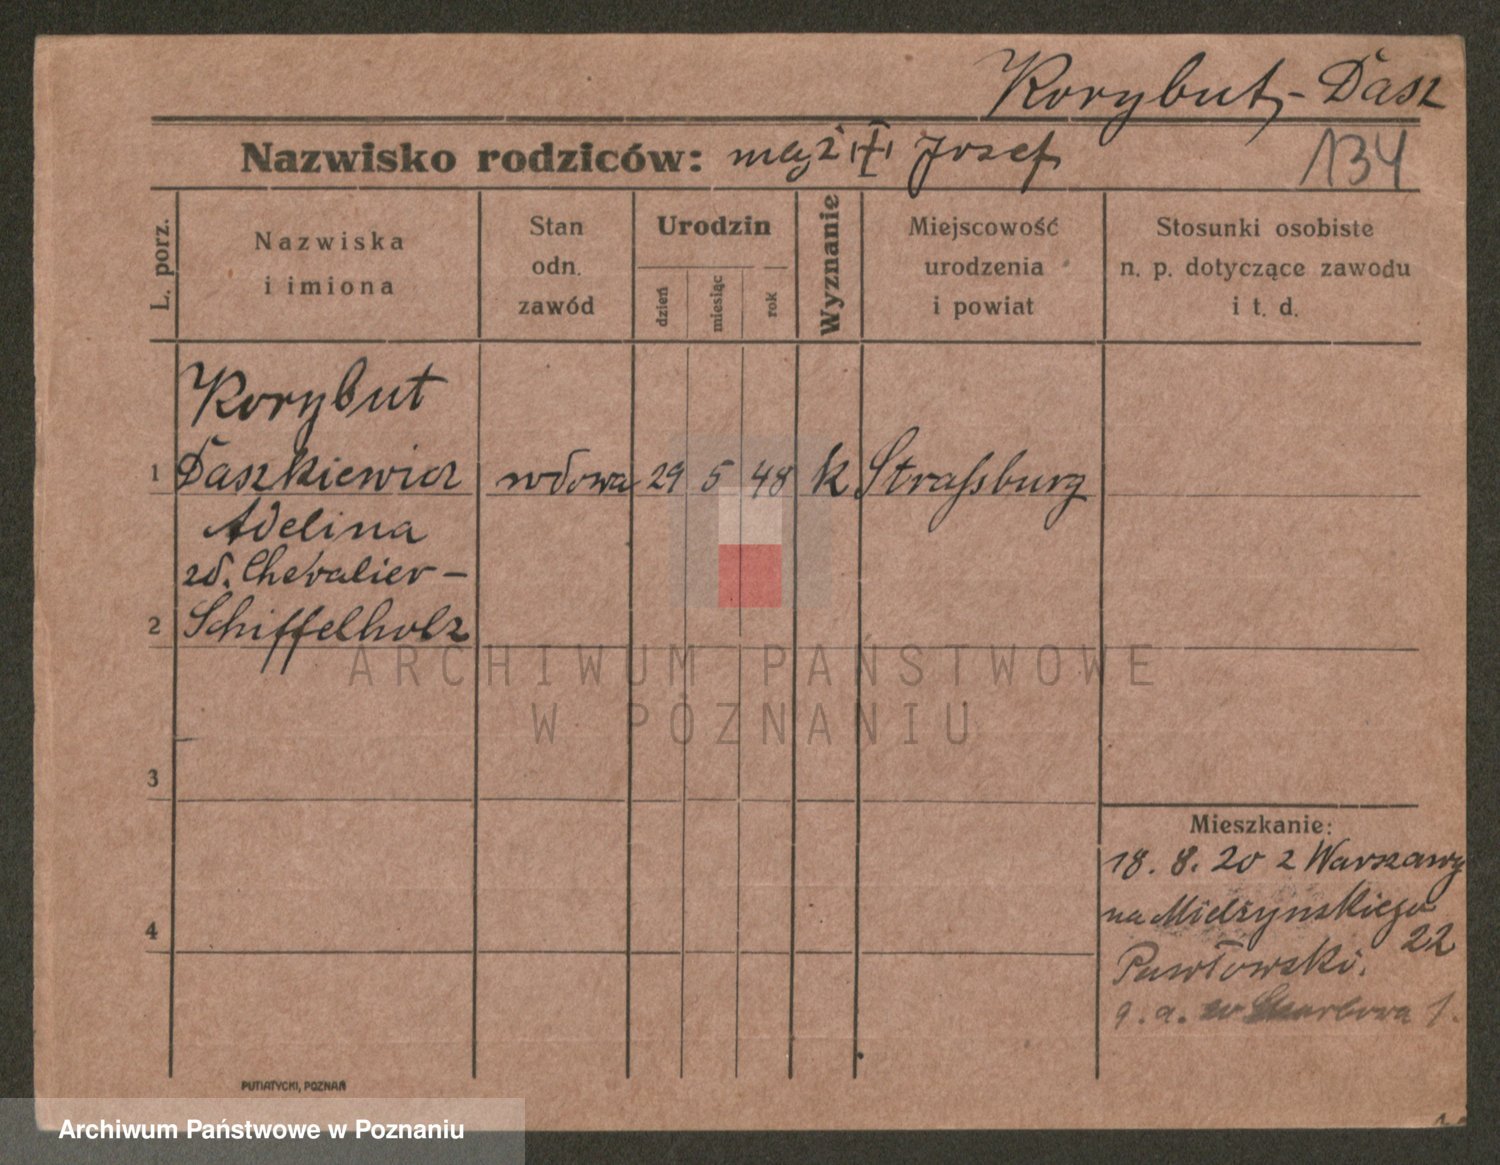 Korybut-Dasz
Nazwisko rodziców: mąż † Josef
134
L. porz.
Nazwiska
i imiona
Stan
odn.
zawód
Urodzin
dzień
miesiąc
rok
Wyznanie
Miejscowość
urodzenia
i powiat
Stosunki osobiste
n. p. dotyczące zawodu
i t. d.
Korybut
1 Daszkiewicz wdowa 29 5 48 k Strassburg
Adelina
zd. Chevalier-
2 Schiffelholz
3
4
Mieszkanie:
18. 8. 20 z Warszawy
na Mielżyńskiego
22
Pawłowski.
9. a. Skarbowa 1.
PUTIATYCKI, POZNAŃ
ARCHIWUM PAŃSTWOWE
W POZNANIU
Archiwum Państwowe w Poznaniu